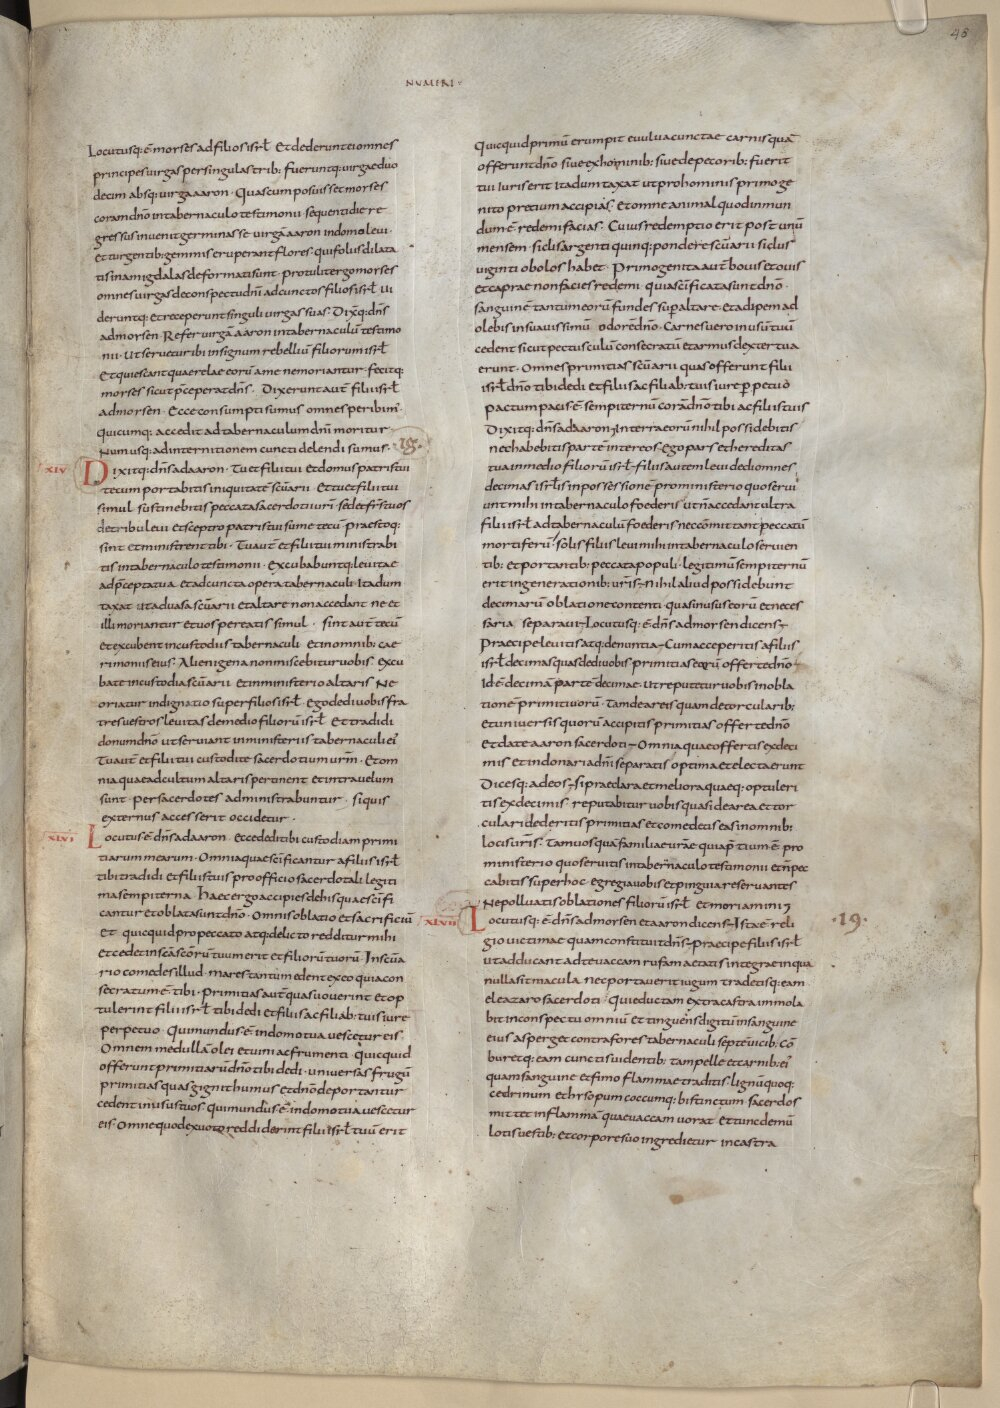 48
NUMERI
Locutusq: ē morses ad filios isrł Et dederunt ei omnes
principes virgas per singulas trib: fueruntq: virgae duo
decim absq: virga aaron · Quas cum posuisset morses
coram dn̄o in tabernaculo testimonii sequenti die re
gressus invenit germinasse virgā aaron in domo levi ·
et turgentib: gemmis eruperant flores · qui foliis dilata
tis in amigdalas deformati sunt · protulit ergo morses
omnes virgas de conspectu dn̄i ad cunctos filios isrł vi
deruntq: et receperunt singuli virgas suas · Dixq: dn̄s
ad morsen · Refer virgā aaron in tabernaculū testimo
nii · Ut servetur ibi in signum rebelliū filiorum isrł
Et quiescant quaerelae eorū a me ne moriantur · fecitq:
morses sicut p̄ceperat dn̄s · Dixerunt aut̄ filii isrł
ad morsen · Ecce consumpti sumus omnes peribim:
Quicumq: accedit ad tabernaculum dn̄i moritur ·
Num usq: ad internitionem cuncti delendi sumus ·
xlv Dixitq: dn̄s ad aaron · Tu et filii tui et domus patris tui
tecum portabitis iniquitatē scūarii · Et tu et filii tui
simul sustinebitis peccata sacerdotii vr̄i · sed et fr̄s tuos
de tribu levi et sceptro patris tui sume tecū Praestoq:
sint et ministrent tibi · Tu aut̄ et filii tui ministrabi
tis in tabernaculo testimonii · Excubabuntq: levitae
ad p̄cepta tua et ad cuncta opera tabernaculi · Ita dum
taxat ut ad vasa scūarii et altare non accedant ne et
illi moriantur et vos pereatis simul · sint aut̄ tecū
et excubent in custodiis tabernaculi et in omnib: cae
rimoniis eius · Alienigena non miscebitur vobis · excu
bate in custodia scūarii et in ministerio altaris Ne
oriatur indignatio super filios isrł Ego dedi vobis fra
tres vestros levitas de medio filiorū isrł Et tradidi
donum dn̄o ut serviant in ministeriis tabernaculi ei:
Tu aut̄ et filii tui custodite sacerdotium urm̄ · Et om
nia quae ad cultum altaris pertinent et intra velum
sunt · per sacerdotes administrabuntur · si quis
externus accesserit occidetur ·
xlvi Locutus ē dn̄s ad aaron · ecce dedi tibi custodiam primi
tiarum mearum · Omnia quae scīficantur a filiis isrł
tibi tradidi et filiis tuis pro officio sacerdotali legiti
ma sempiterna · Haec ergo accipies de his quae scīfi
cantur et oblata sunt dn̄o · Omnis oblatio et sacrificiū
et quicquid pro peccato atq: delicto redditur mihi
et cedet in scā scōrū tuum erit et filiorū tuorū · In scūa
rio comedes illud · mares tantum edent ex eo quia con
secratum ē tibi · Primitias aut̄ quas voverint et op
tulerint filii isrł tibi dedi et filiis ac filiab: tuis iure
perpetuo · Qui mundus ē in domo tua vescetur eis ·
Omnem medullā olei et vini ac frumenti quicquid
offerunt primitiarū dn̄o tibi dedi · universas frugū
primitias quas gignit humus et dn̄o deportantur
cedent in usus tuos · qui mundus ē in domo tua vescetur
eis · Omne quod ex voto reddiderint filii isrł tuū erit
Quicquid primū erumpit e vulva cunctae carnis quā
offerunt dn̄o sive ex hominib: sive de pecorib: fuerit
tui iuris erit Ita dumtaxat ut pro hominis primoge
nito pretium accipias · Et omne animal quod inmun
dum ē redemi facias · Cuius redemptio erit post unū
mensem · siclis argenti quinq: pondere scūarii siclus
viginti obolos habet · Primogenita aut̄ bovis et ovis
et caprae non facies redemi quia scīficata sunt dn̄o ·
sanguinē tantum eorū fundes sup altare · et adipem ad
olebis in suavissimū odorē dn̄o · Carnes vero in usū tuū
cedent sicut pectusculū consecratū et armus dexter tua
erunt · Omnes primitias scūarii quas offerunt filii
isrł dn̄o tibi dedi et filiis ac filiab: tuis iure p̱petuo
pactum pacis ē sempiternū corā dn̄o tibi ac filiis tuis
Dixitq: dn̄s ad aaron · In terra eorū nihil possidebitis
nec habebitis partē inter eos · Ego pars et hereditas
tua in medio filiorū isrł · filiis autem levi dedi omnes
decimas isrłis in possessionē pro ministerio quo servi
unt mihi in tabernaculo foederis ut n̄ accedant ultra
filii isrł ad tabernaculū foederis nec cōmittant peccatū
mortiferū · solis filiis levi mihi in tabernaculo servien
tib: et portantib: peccata populi · legitimū sempiternū
erit in generationib: vr̄is · Nihil aliud possidebunt
decimarū oblatione contenti quas in usus eorū et neces
saria separavi · Locutusq: ē dn̄s ad morsen dicens ·
Praecipe levitis atq: denuntia · Cum acceperitis a filiis
isrł decimas quas dedi vobis primitias eorū offerte dn̄o
Id ē decimā partē decimae · ut reputetur vobis in obla
tionē primitivorū · Tam de areis quam de torcularib:
et universis quorū accipitis primitias offerte dn̄o
Et date aaron sacerdoti · Omnia quae offertis ex deci
mis et in donaria dn̄i separatis optima et electa erunt
Dicesq: ad eos · si praeclara et meliora quaeq: optuleri
tis ex decimis reputabitur vobis quasi de area et tor
culari dederitis primitias et comedetis eas in omnib:
locis ur̄is · Tam vos quā familiae vr̄ae quia p̱tium ē pro
ministerio quo servitis in tabernaculo testimonii et n̄ pec
cabitis super hoc · egregia vobis et pinguia reservantes
Ne polluatis oblationes filiorū isrł et moriamini
xlvii Locutusq: ē dn̄s ad morsen et aaron dicens · Ista ē reli
gio victimae quam constituit dn̄s · praecipe filiis isrł
ut adducant ad te vaccam rufam aetatis integrae in qua
nulla sit macula nec portaverit iugum tradetisq: eam
eleazaro sacerdoti · Qui eductam extra castra immola
bit in conspectu omniū Et tinguens digitū in sanguine
eius asperget contra fores tabernaculi septē vicib: Cō
buretq: eam cunctis videntib: tam pelle et carnib: ei:
quam sanguine et fimo flammae traditis · lignū quoq:
cedrinum et hrsopum coccumq: bis tinctum sacerdos
mittet in flammā quae vaccam vorat Et tunc demū
lotis vestib: et corpore suo ingredietur in castra
·18·
·19·